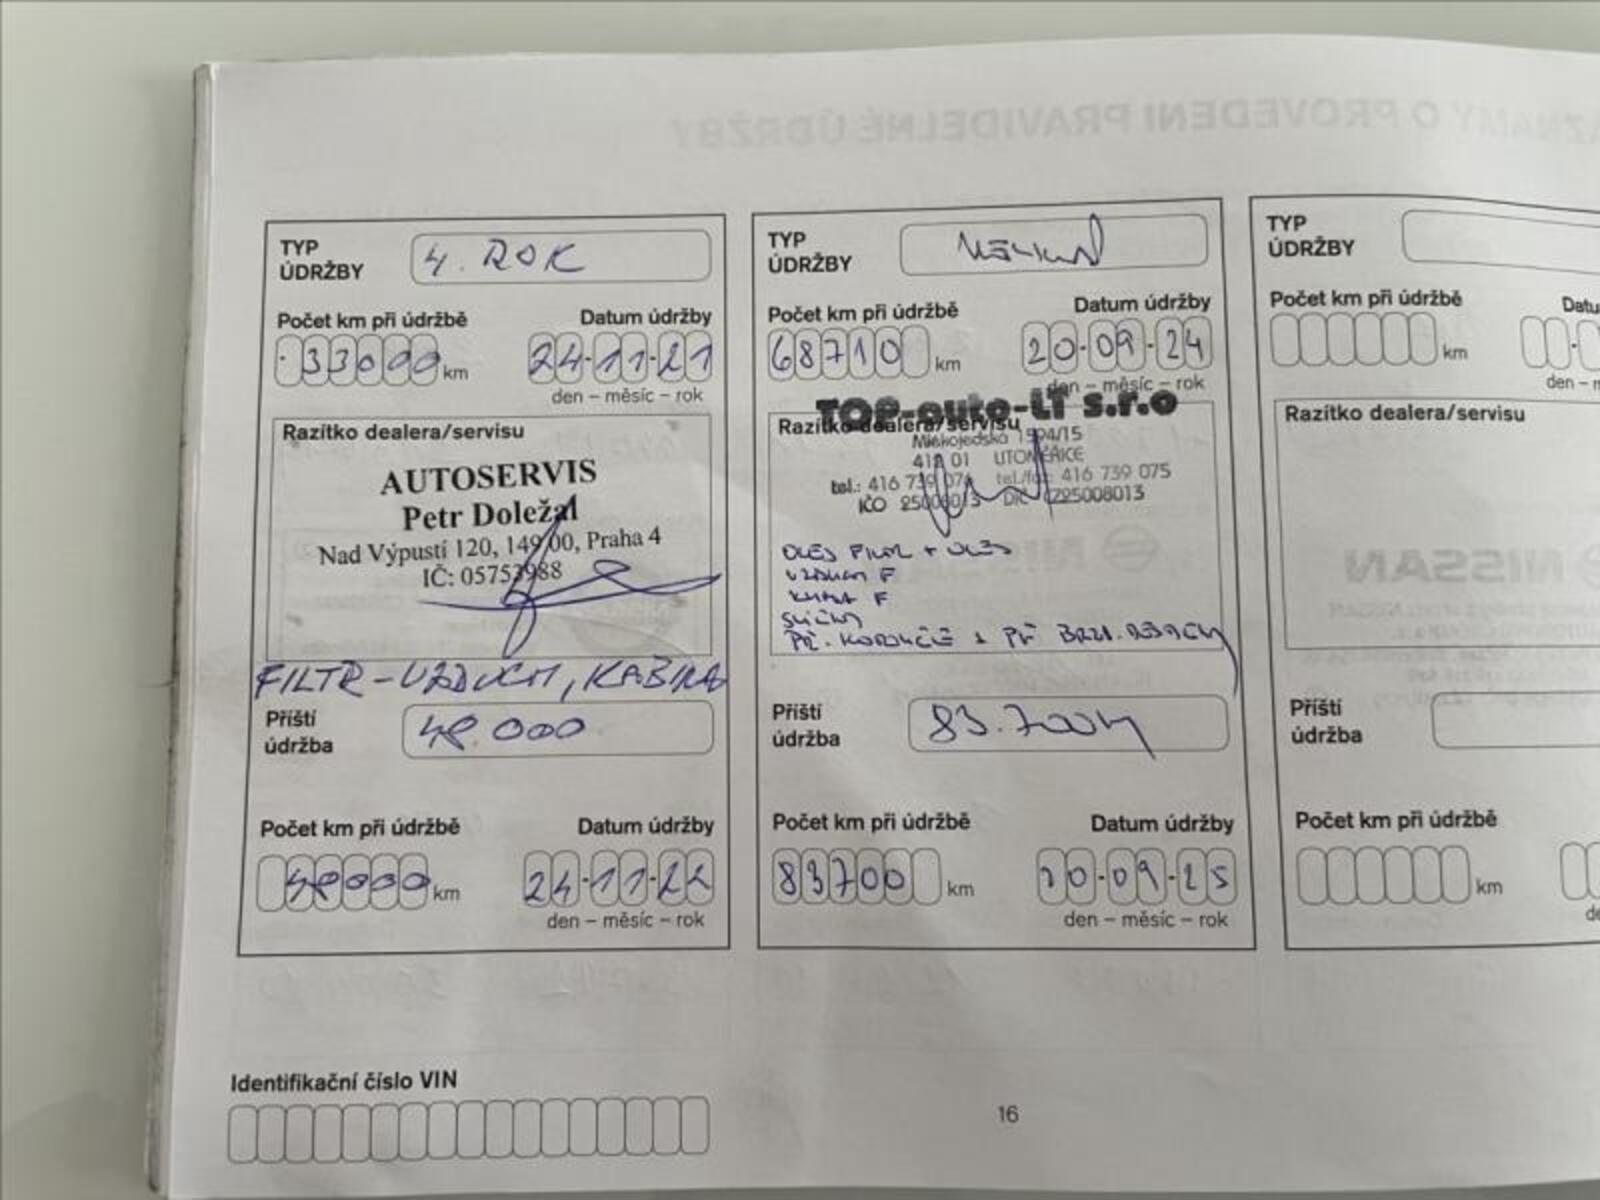 TYP
ÚDRŽBY
4. ROK
Počet km při údržbě
Datum údržby
33000 km
24-11-21
den – měsíc – rok
Razítko dealera/servisu
AUTOSERVIS
Petr Doležal
Nad Výpustí 120, 149 00, Praha 4
IČ: 05753988
FILTR - VZDUCH, KABINA
Příští
údržba
48.000
Počet km při údržbě
Datum údržby
48000 km
24-11-22
den – měsíc – rok
TYP
ÚDRŽBY
Počet km při údržbě
Datum údržby
68710 km
20-09-24
den – měsíc – rok
TOP-auto-LT s.r.o
Razítko dealera/servisu
Miskojedská 1594/15
412 01 LITOMĚŘICE
tel.: 416 739 076 tel./fax: 416 739 075
IČO 25008013 DIČ CZ25008013
OLEJ FILTR + OLEJ
VZDUCH F
KABINA F
SVÍČKY
PŘ. KOTOUČE + PŘ BRZD. DESTIČKY
Příští
údržba
83.700
Počet km při údržbě
Datum údržby
83700 km
20-09-25
den – měsíc – rok
TYP
ÚDRŽBY
Počet km při údržbě
Datu
km
den – m
Razítko dealera/servisu
Příští
údržba
Počet km při údržbě
km
de
Identifikační číslo VIN
16